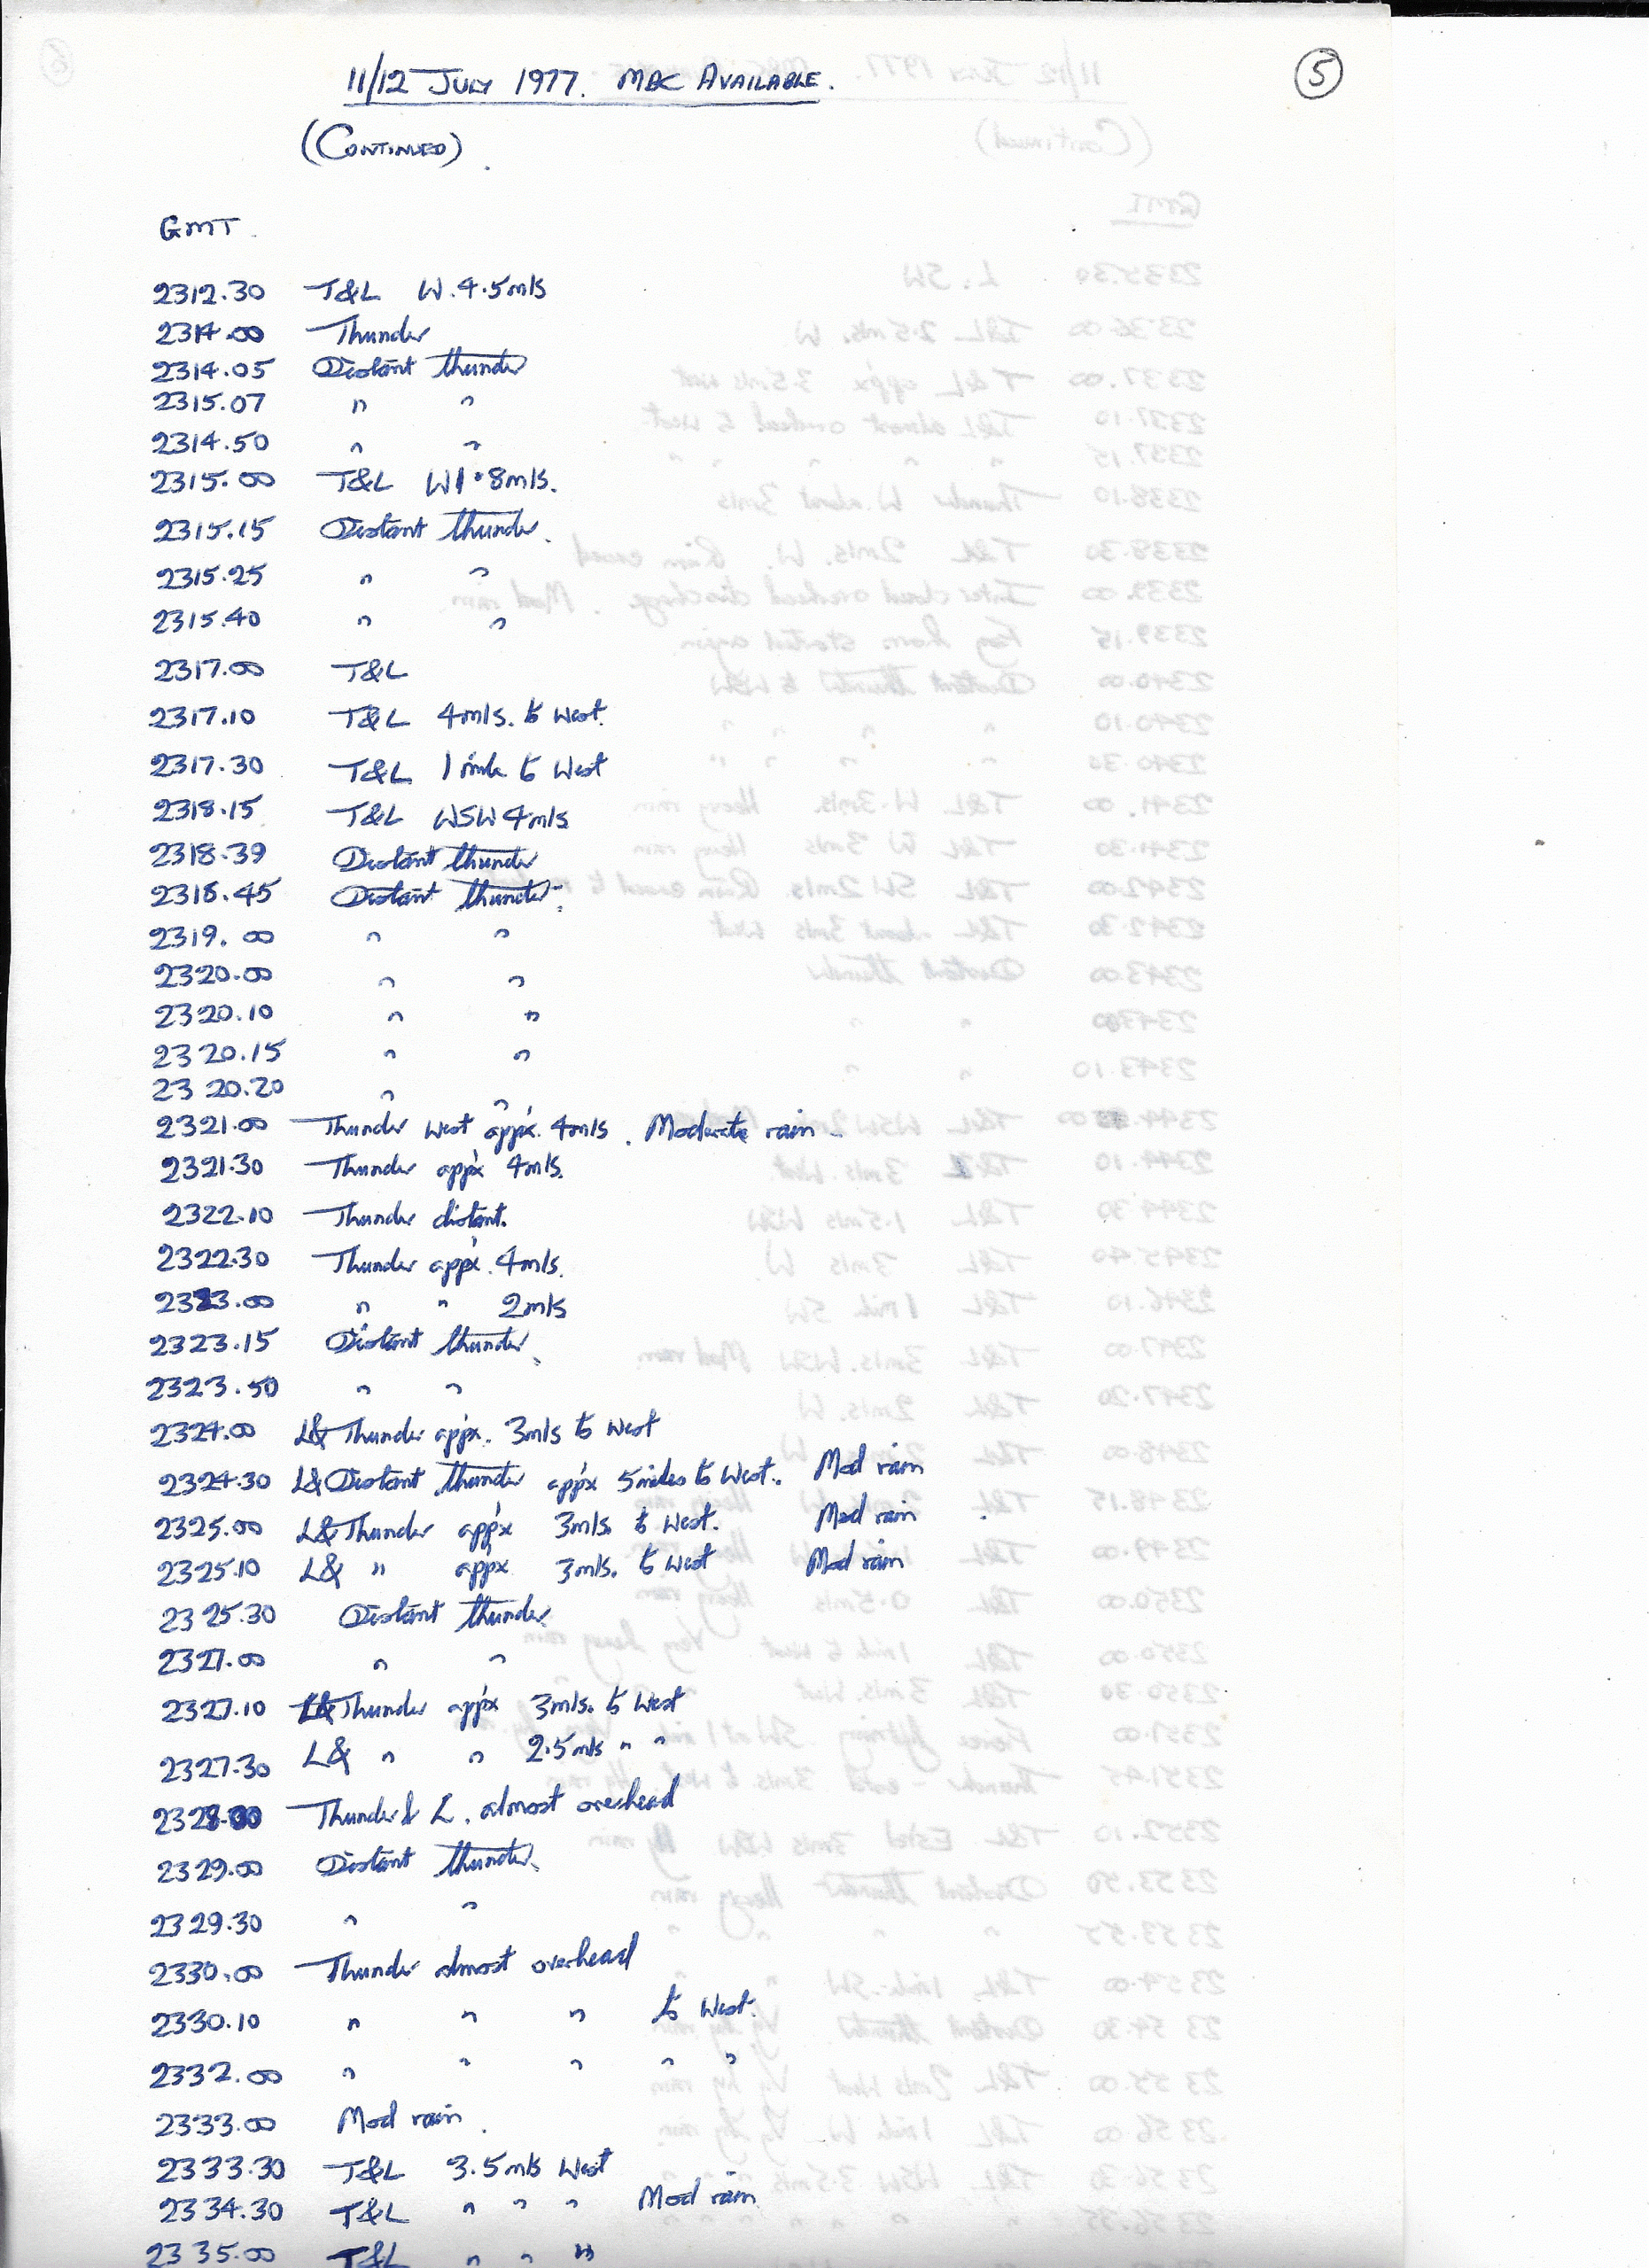 11/12 JULY 1977. MBC AVAILABLE.
5
(CONTINUED).
GMT.
2312.30 T&L W.4.5mls
2314.00 Thunder
2314.05 Distant thunder
2315.07 " "
2314.50 " "
2315.00 T&L W1.8mls.
2315.15 Distant thunder.
2315.25 " "
2315.40 " "
2317.00 T&L
2317.10 T&L 4mls. to West.
2317.30 T&L 1 mile to West
2318.15 T&L WSW 4mls
2318.39 Distant thunder
2318.45 Distant thunder.
2319.00 " "
2320.00 " "
2320.10 " "
2320.15 " "
2320.20 " "
2321.00 Thunder West appx. 4mls. Moderate rain
2321.30 Thunder appx 4mls.
2322.10 Thunder distant.
2322.30 Thunder appx. 4mls.
2323.00 " " 2mls
2323.15 Distant thunder.
2323.50 " "
2324.00 L& Thunder appx. 3mls to West
2324.30 L& Distant thunder appx 5miles to West. Mod rain
2325.00 L& Thunder appx 3mls. to West. Mod rain
2325.10 L& " appx 3mls. to West Mod rain
2325.30 Distant thunder
2327.00 " "
2327.10 L& Thunder appx 3mls. to West
2327.30 L& " " 2.5mls " "
2328.00 Thunder & L. almost overhead
2329.00 Distant thunder.
2329.30 " "
2330.00 Thunder almost overhead
2330.10 " " " to West.
2332.00 " " " " "
2333.00 Mod rain.
2333.30 T&L 3.5mls West
2334.30 T&L " " " Mod rain
2335.00 T&L " " "